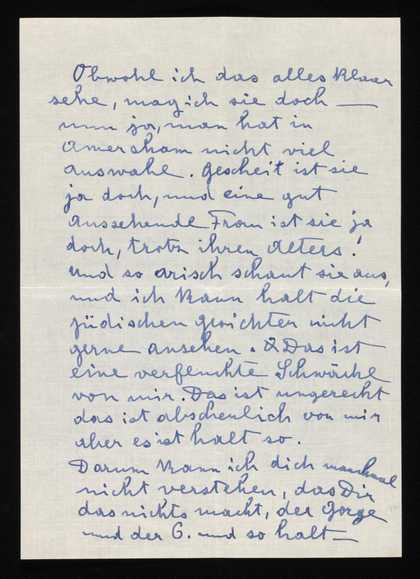 Obwohl ich das alles klaar
sehe, mag ich sie doch —
nun ja, man hat in
Amersham nicht viel
auswahl. Gescheit ist sie
ja doch, und eine gut
aussehende Frau ist sie ja
doch, trotz ihren Alters!
Und so arisch schaut sie aus,
und ich kann halt die
jüdischen Gesichter nicht
gerne ansehen. Das ist
eine verfluchte Schwäche
von mir. Das ist ungerecht
das ist abscheulich von mir
aber es ist halt so.
Darum kann ich dich manchmal
nicht verstehen, das Dir
das nichts macht, der Gorge
und der G. und so halt —